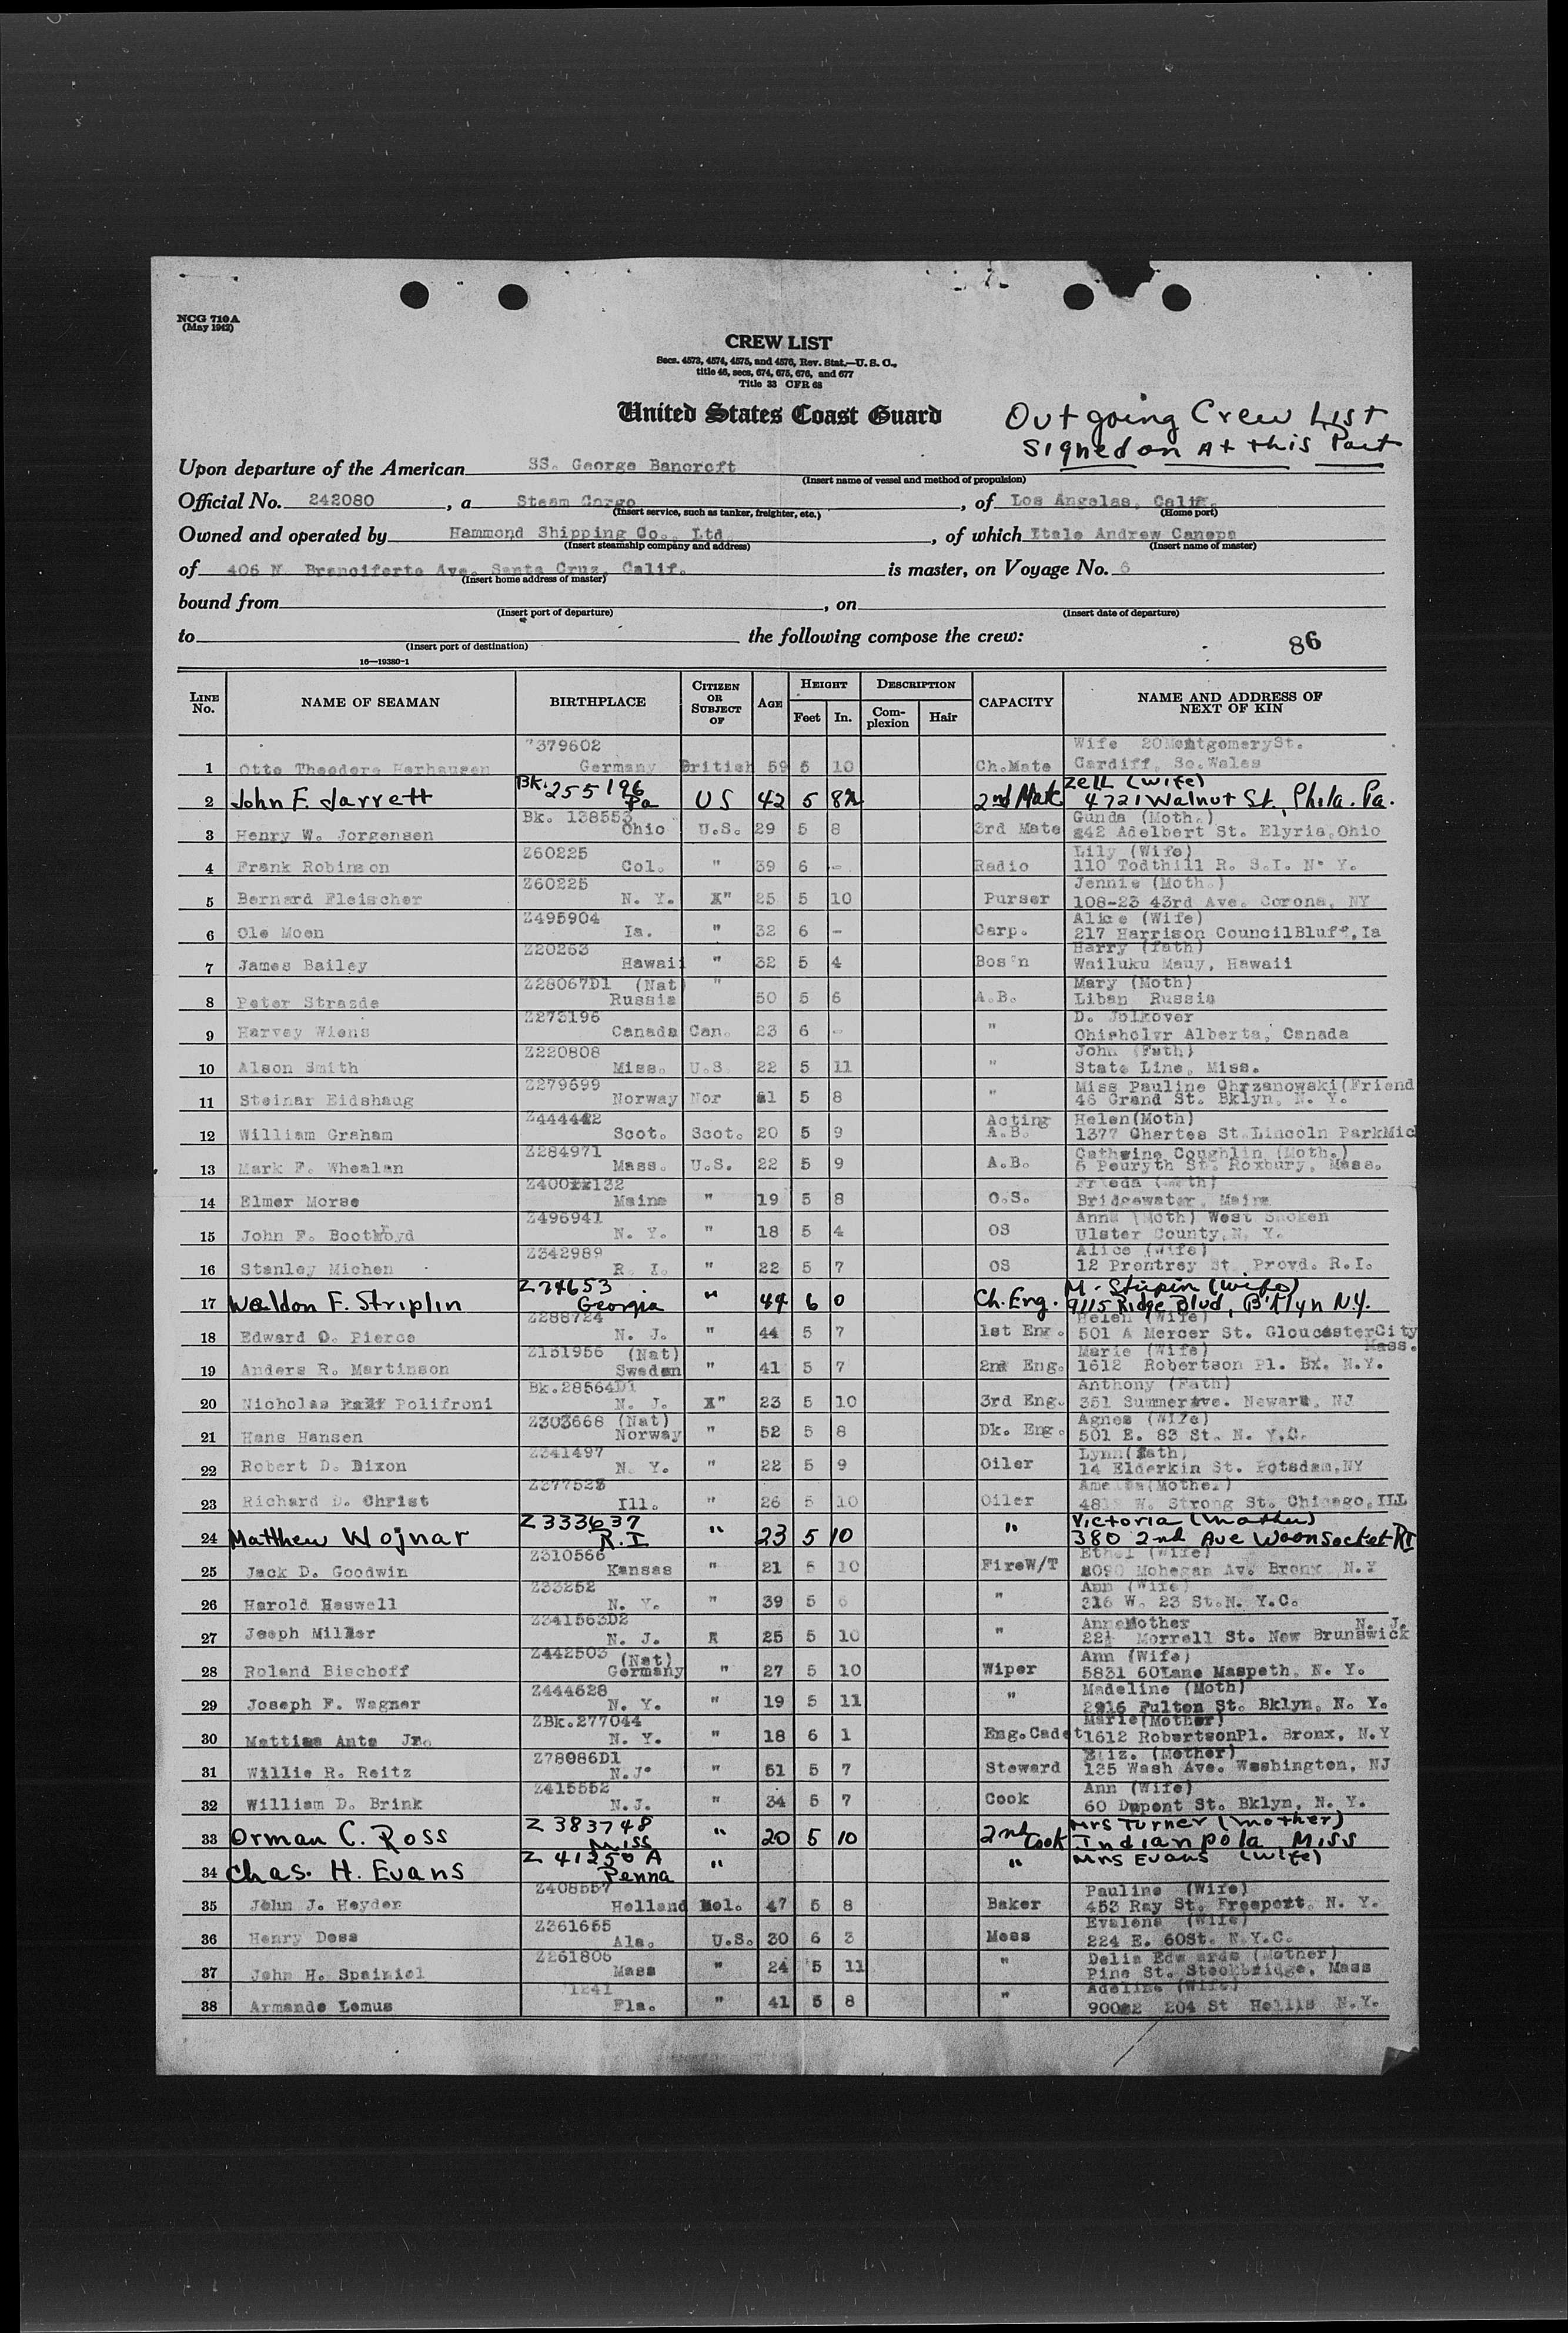 NCG 710A
(May 1942)
CREW LIST
Secs. 4573, 4574, 4575, and 4576, Rev. Stat.—U. S. C.,
title 46, secs. 674, 675, 676, and 677
Title 33 CFR 68
United States Coast Guard
Outgoing Crew List
Signed on At this Port
Upon departure of the American SS. George Bancroft
(Insert name of vessel and method of propulsion)
Official No. 242080, a Steam Cargo, of Los Angelas, Calif.
(Insert service, such as tanker, freighter, etc.) (Home port)
Owned and operated by Hammond Shipping Co., Ltd., of which Itale Andrew Canepa
(Insert steamship company and address) (Insert name of master)
of 406 N. Branciforte Ave. Santa Cruz, Calif. is master, on Voyage No. 6
(Insert home address of master)
bound from , on
(Insert port of departure) (Insert date of departure)
to the following compose the crew:
(Insert port of destination)
16—19380-1
86
LINE No. NAME OF SEAMAN BIRTHPLACE CITIZEN OR SUBJECT OF AGE HEIGHT Feet In. DESCRIPTION Complexion Hair CAPACITY NAME AND ADDRESS OF NEXT OF KIN
7379602 Wife 20 Montgomery St.
1 Otto Theodore Germany British 59 5 10 Ch.Mate Cardiff, So.Wales
Bk. 255196 Zell (wife)
2 John F. Jarrett Pa US 42 5 8½ 2nd Mate 4721 Walnut St, Phila. Pa.
Bk. 138553 Gunda (Moth.)
3 Henry W. Jorgensen Ohio U.S. 29 5 8 3rd Mate 242 Adelbert St. Elyria,Ohio
Z60225 Lily (Wife)
4 Frank Robinson Col. " 39 6 - Radio 110 Todthill R. S.I. N. Y.
Z60225 Jennie (Moth.)
5 Bernard Fleischer N. Y. X" 25 5 10 Purser 108-23 43rd Ave. Corona, NY
Z495904 Alice (Wife)
6 Ole Moen Ia. " 32 6 - Carp. 217 Harrison CouncilBluff, Ia
Z20263 Harry (fath)
7 James Bailey Hawaii " 32 5 4 Bos'n Wailuku Mauy, Hawaii
Z28067D1 (Nat) Mary (Moth)
8 Peter Strazde Russia " 50 5 6 A.B. Liban Russia
Z273196 D. Jolkover
9 Harvey Wiens Canada Can. 23 6 - " Alberta, Canada
Z220808 John (Fath)
10 Alson Smith Miss. U.S. 22 5 11 " State Line, Miss.
Z279699 Miss Pauline Chrzanowski(Friend
11 Steinar Eidshaug Norway Nor 5 8 " 46 Grand St. Bklyn, N. Y.
Z444442 Acting Helen(Moth)
12 William Graham Scot. Scot. 20 5 9 A.B. 1377 Chartes St.Lincoln ParkMic
Z284971 Coughlin (Moth.)
13 Mark F. Whealan Mass. U.S. 22 5 9 A.B. 5 Peuryth St. Roxbury, Mass.
Frieda (Moth)
14 Elmer Morse Maine " 19 5 8 O.S. Bridgewater, Maine
Z496941 Anna (Moth) West
15 John F. Boothoyd N. Y. " 18 5 4 OS Ulster County,N. Y.
Z342989 Alice (Wife)
16 Stanley Michen R. I. " 22 5 7 OS 12 Prentrey St. Provd. R.I.
Z74653 M. (wife)
17 Weldon F. Striplin Georgia " 44 6 0 Ch. Eng. 9115 Ridge Blvd, B'klyn N.Y.
Z288724 Helen (Wife)
18 Edward O. Pierce N. J. " 44 5 7 1st Eng. 501 A Mercer St. GloucesterCity
Mass.
Z151956 (Nat) Marie (Wife)
19 Anders R. Martinson Sweden " 41 5 7 2nd Eng. 1612 Robertson Pl. Bx. N.Y.
Bk.28564D1 Anthony (Fath)
20 Nicholas Polifroni N. J. X" 23 5 10 3rd Eng. 351 Summer Ave. Newark, NJ
Z303668 (Nat) Agnes (Wife)
21 Hans Hansen Norway " 52 5 8 Dk. Eng. 501 E. 83 St. N. Y.C.
Z341497 Lynn(fath)
22 Robert D. Dixon N. Y. " 22 5 9 Oiler 14 Elderkin St. Potsdam,NY
Z377528 Amelia(Mother)
23 Richard D. Christ Ill. " 26 5 10 Oiler W. Strong St. Chicago,ILL
Z333637 Victoria (mother)
24 Matthew Wojnar R.I " 23 5 10 " 380 2nd Ave Woonsocket RI
Z310566 Ethel (Wife)
25 Jack D. Goodwin Kansas " 21 5 10 FireW/T 2090 Mohegan Av. Bronx N.Y
Z33252 Ann (Wife)
26 Harold Haswell N. Y. " 39 5 6 " 316 W. 23 St.N. Y.C.
Z341563D2 Anna Mother N. J.
27 Jesph Miller N. J. 25 5 10 " Morrell St. New Brunswick
Z442503 (Nat) Ann (Wife)
28 Roland Bischoff Germany " 27 5 10 Wiper 5831 60Lane Maspeth, N. Y.
Z444628 Madeline (Moth)
29 Joseph F. Wagner N. Y. " 19 5 11 " 2916 Fulton St. Bklyn, N. Y.
ZBk.277044 Marie(Mother)
30 Mattias Ants Jr. N. Y. " 18 6 1 Eng.Cadet 1612 RobertsonPl. Bronx, N.Y
Z78086D1 Eliz. (Mother)
31 Willie R. Reitz N.J. " 51 5 7 Steward 135 Wash Ave. Washington, NJ
Z415552 Ann (Wife)
32 William D. Brink N.J. " 34 5 7 Cook 60 Dupont St. Bklyn, N. Y.
Z 383748 Mrs Turner (mother)
33 Orman C. Ross Miss " 20 5 10 2nd Cook Indianpola Miss
Z 41250 A Mrs Evans (wife)
34 Chas. H. Evans Penna " "
Z408557 Pauline (Wife)
35 John J. Heyden Holland Hol. 47 5 8 Baker 453 Ray St. Freeport, N. Y.
Z361655 Evalena (Wife)
36 Henry Doss Ala. U.S. 30 6 3 Mess 224 E. 60St. N.Y.C.
Z261805 Delia Edwards (Mother)
37 John H. Spainiel Mass " 24 5 11 " Pine St. Stockbridge, Mass
1241 Adeline (Wife)
38 Armando Lemus Fla. " 41 5 8 " 204 St Hollis N.Y.